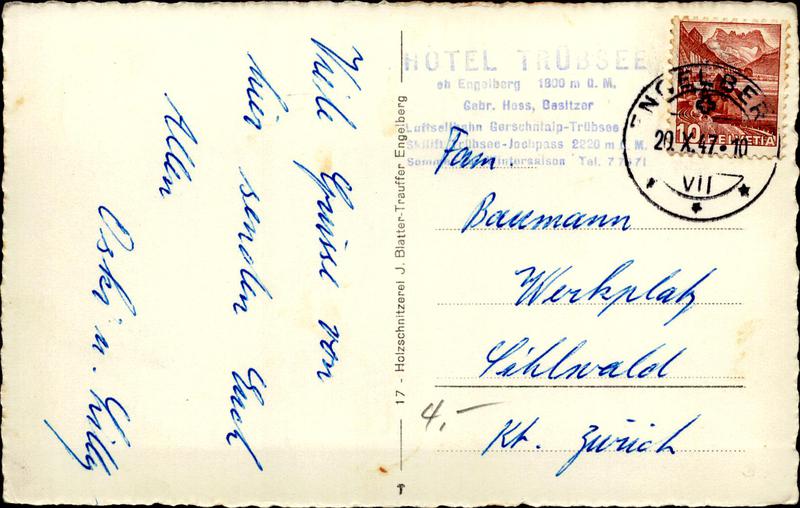 Viele Grüsse von
hier senden Euch
Allen
Oski u. Lilly
17 - Holzschnitzerei J. Blatter-Trauffer Engelberg
HOTEL TRÜBSEE
ob Engelberg 1800 m ü. M.
Gebr. Hess, Besitzer
Luftseilbahn Gerschnialp-Trübsee
Skilift Trübsee-Jochpass 2220 m ü. M.
Tel. 7 71 71
HELVETIA
10
ENGELBERG
20.X.47.10
VII
Fam.
Baumann
Werkplatz
Sihlwald
Kt. Zürich
4.-